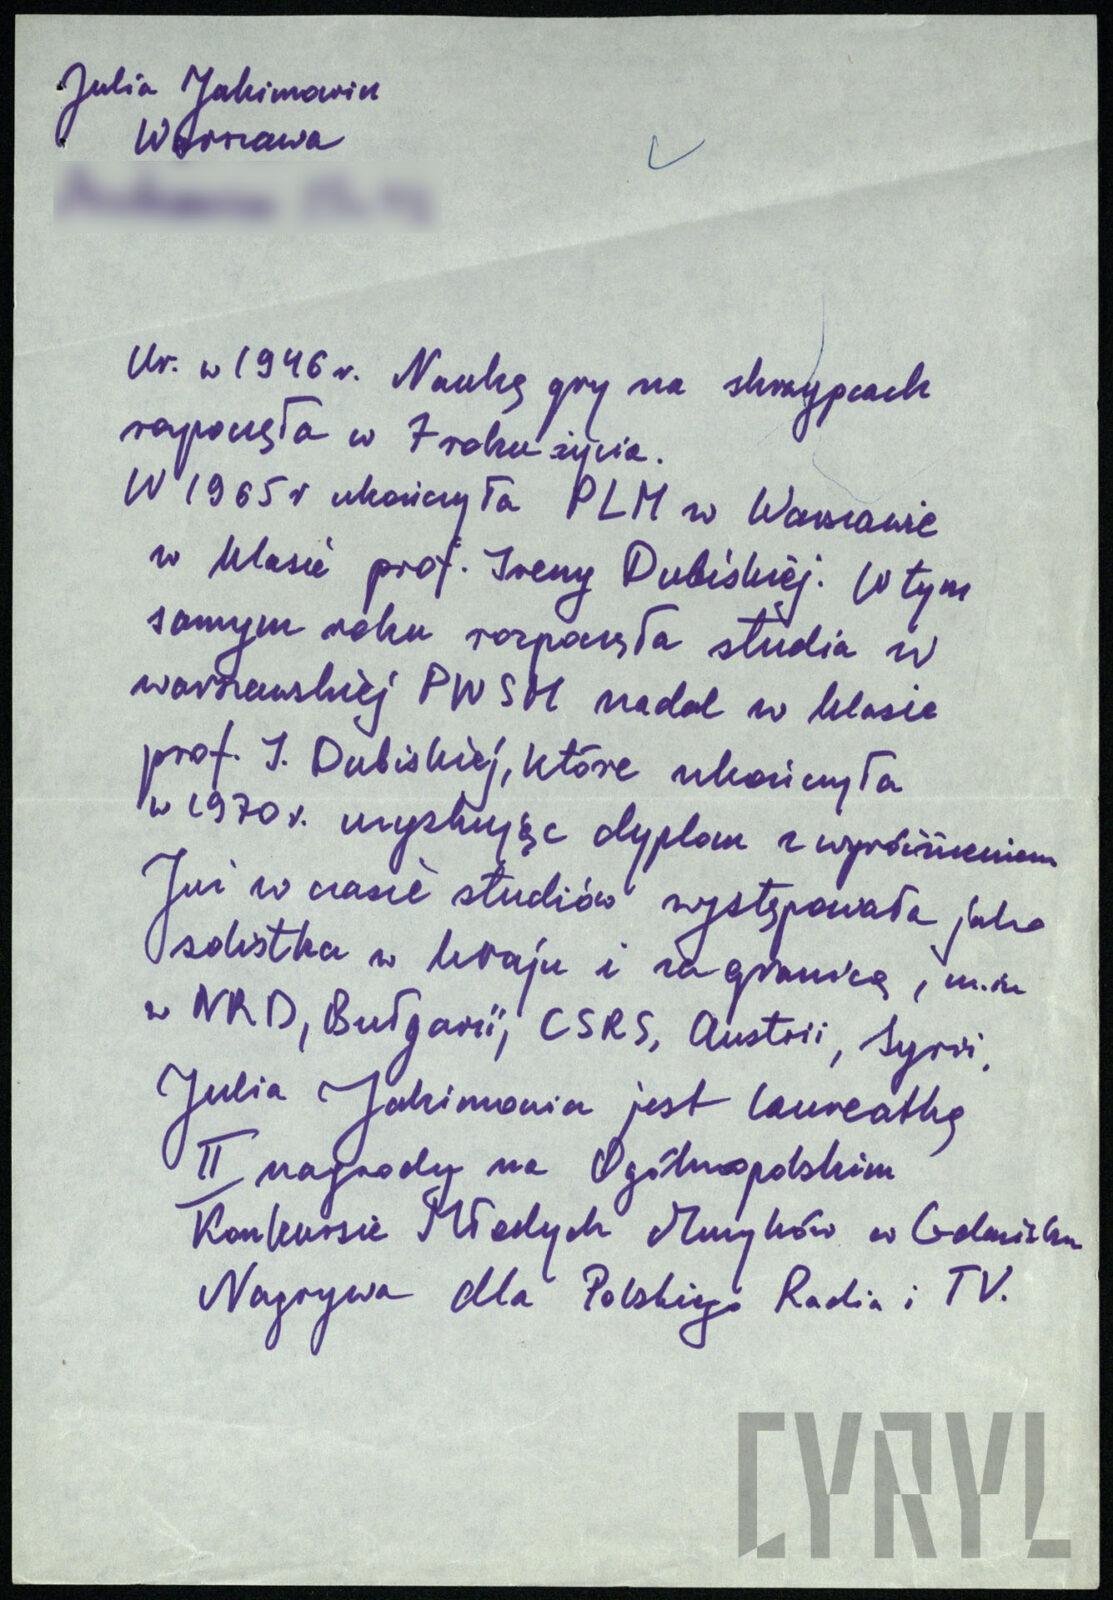 Julia Jakimowicz
Warszawa
Ur. w 1946 r. Naukę gry na skrzypcach
rozpoczęła w 7 roku życia.
W 1965 r ukończyła PLM w Warszawie
w klasie prof. Ireny Dubiskiej. W tym
samym roku rozpoczęła studia w
warszawskiej PWSM nadal w klasie
prof. I. Dubiskiej, które ukończyła
w 1970 r. uzyskując dyplom z wyróżnieniem
Już w czasie studiów występowała jako
solistka w kraju i za granicą, m.in
w NRD, Bułgarii, CSRS, Austrii, Syrii.
Julia Jakimowicz jest laureatką
II nagrody na Ogólnopolskim
Konkursie Młodych Muzyków w Gdańsku
Nagrywa dla Polskiego Radia i TV.
CYRYL